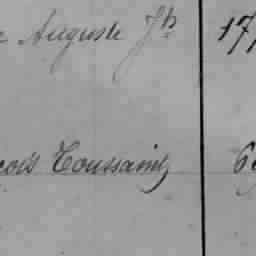 Auguste Jh 17
çois Toussaint 6